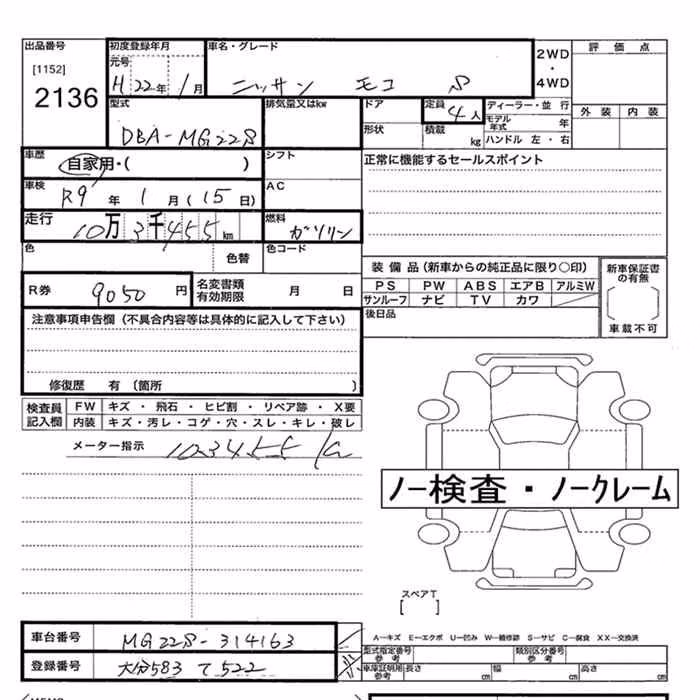 出品番号 初度登録年月 車名・グレード 2WD 評価点
[1152] 元号
2136 H 22年 1月 ニッサン モコ S ・ 4WD
型式 排気量又はkw ドア 定員 4人 ディーラー・並 行 外装 内装
DBA-MG22S 形状 積載 kg モデル年式 年
ハンドル 左・右
車歴 自家用・( ) シフト 正常に機能するセールスポイント
車検 R9年 1月(15日) AC
走行 10万3千455km 燃料 ガソリン
色 色替 色コード
装備品(新車からの純正品に限り○印) 新車保証書の有無
R券 9050円 名変書類有効期限 月 日 PS PW ABS エアB アルミW
サンルーフ ナビ TV カワ
注意事項申告欄(不具合内容等は具体的に記入して下さい) 後日品 車載不可
修復歴 有〔箇所 〕
検査員記入欄 FW キズ・飛石・ヒビ割・リペア跡・X要
内装 キズ・汚レ・コゲ・穴・スレ・キレ・破レ
メーター指示 103455 K
ノー検査・ノークレーム
スペアT
[ ]
車台番号 MG22S-314163 A―キズ E―エクボ U―凹み W―補修跡 S―サビ C―腐食 XX―交換済
型式指定番号 参考 類別区分番号 参考
登録番号 大分583 て522 車庫証明用 参考 長さ cm 幅 cm 高さ cm
MEMO